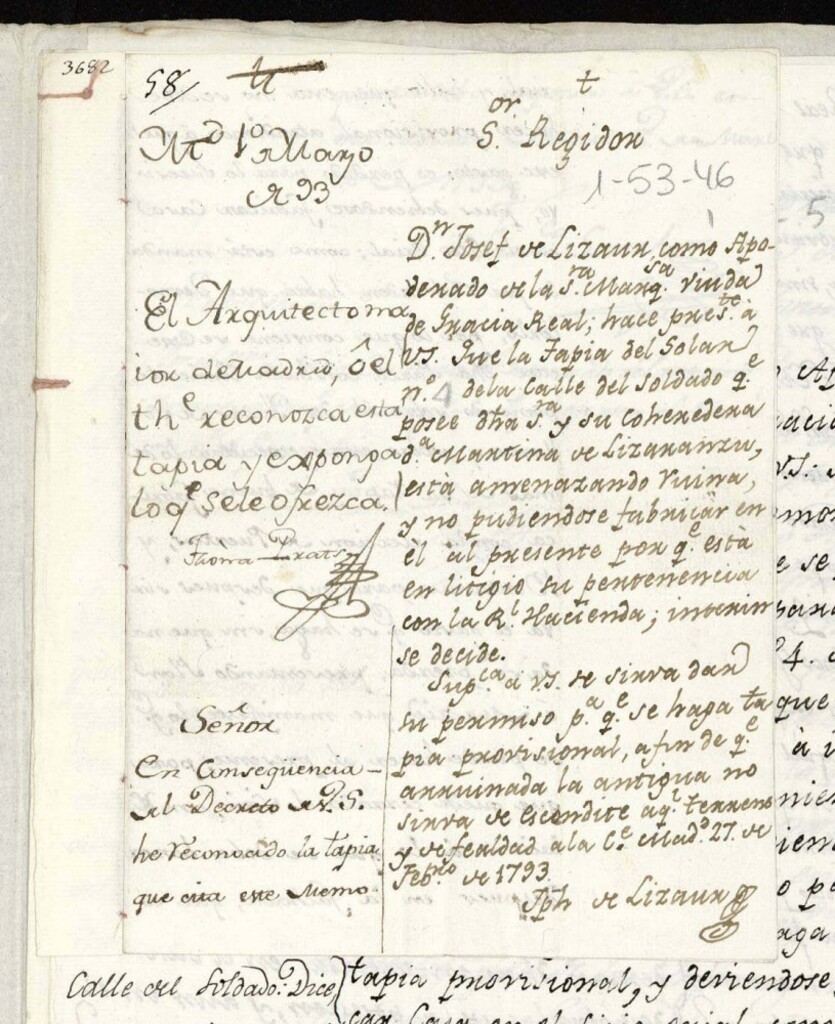 3682
58/
Md. 1º Marzo
de 93
El Arquitecto ma
ior de Madrid, ô el
the reconozca esta
tapia y exponga
loqe sele ofrezca.
Thoma Prats
Señor
En Conseqüencia
del Decreto de V.S.
he reconocido la tapia
que cita este Memo-
†
Sor Regidor
1-53-46
Dn Josef de Lizaur, como Apo-
derado de la Sra Marqsa viuda
de Gracia Real; hace preste à
VS. Que la Tapia del Solar
nº 4 de la Calle del Soldado qe
posee dha Sra y su Coheredera
da Martina de Lizararzu,
està amenazando ruina,
y no pudiendose fabricar en
èl al presente por qe està
en litigio su pertenencia
con la Rl Hacienda; interin
se decide.
Supca à VS. se sirva dar
su permiso pa qe se haga ta
pia provisional, afin de qe
arruinada la antigua no
sirva de escondite aql terreno
y de fealdad ala Ce Madd 27 de
Febro de 1793
Jph de Lizaur
5
Calle del Soldado: Dice
tapia provisional, y deviendose